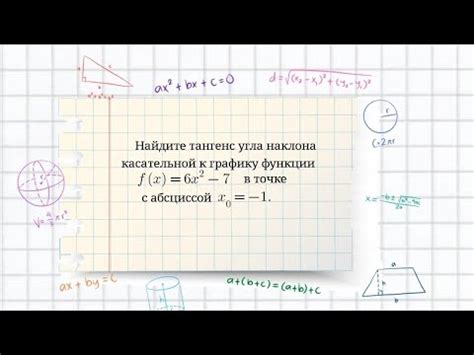 ax² + bx + c = 0
d = √(x₂ - x₁)² + (y₂ - y₁)²
Найдите тангенс угла наклона
касательной к графику функции
f (x) = 6x² − 7 в точке
с абсциссой x₀ = −1.
r
C=2πr
a
b
ax + by = c
a+(b+c) = (a+b)+c